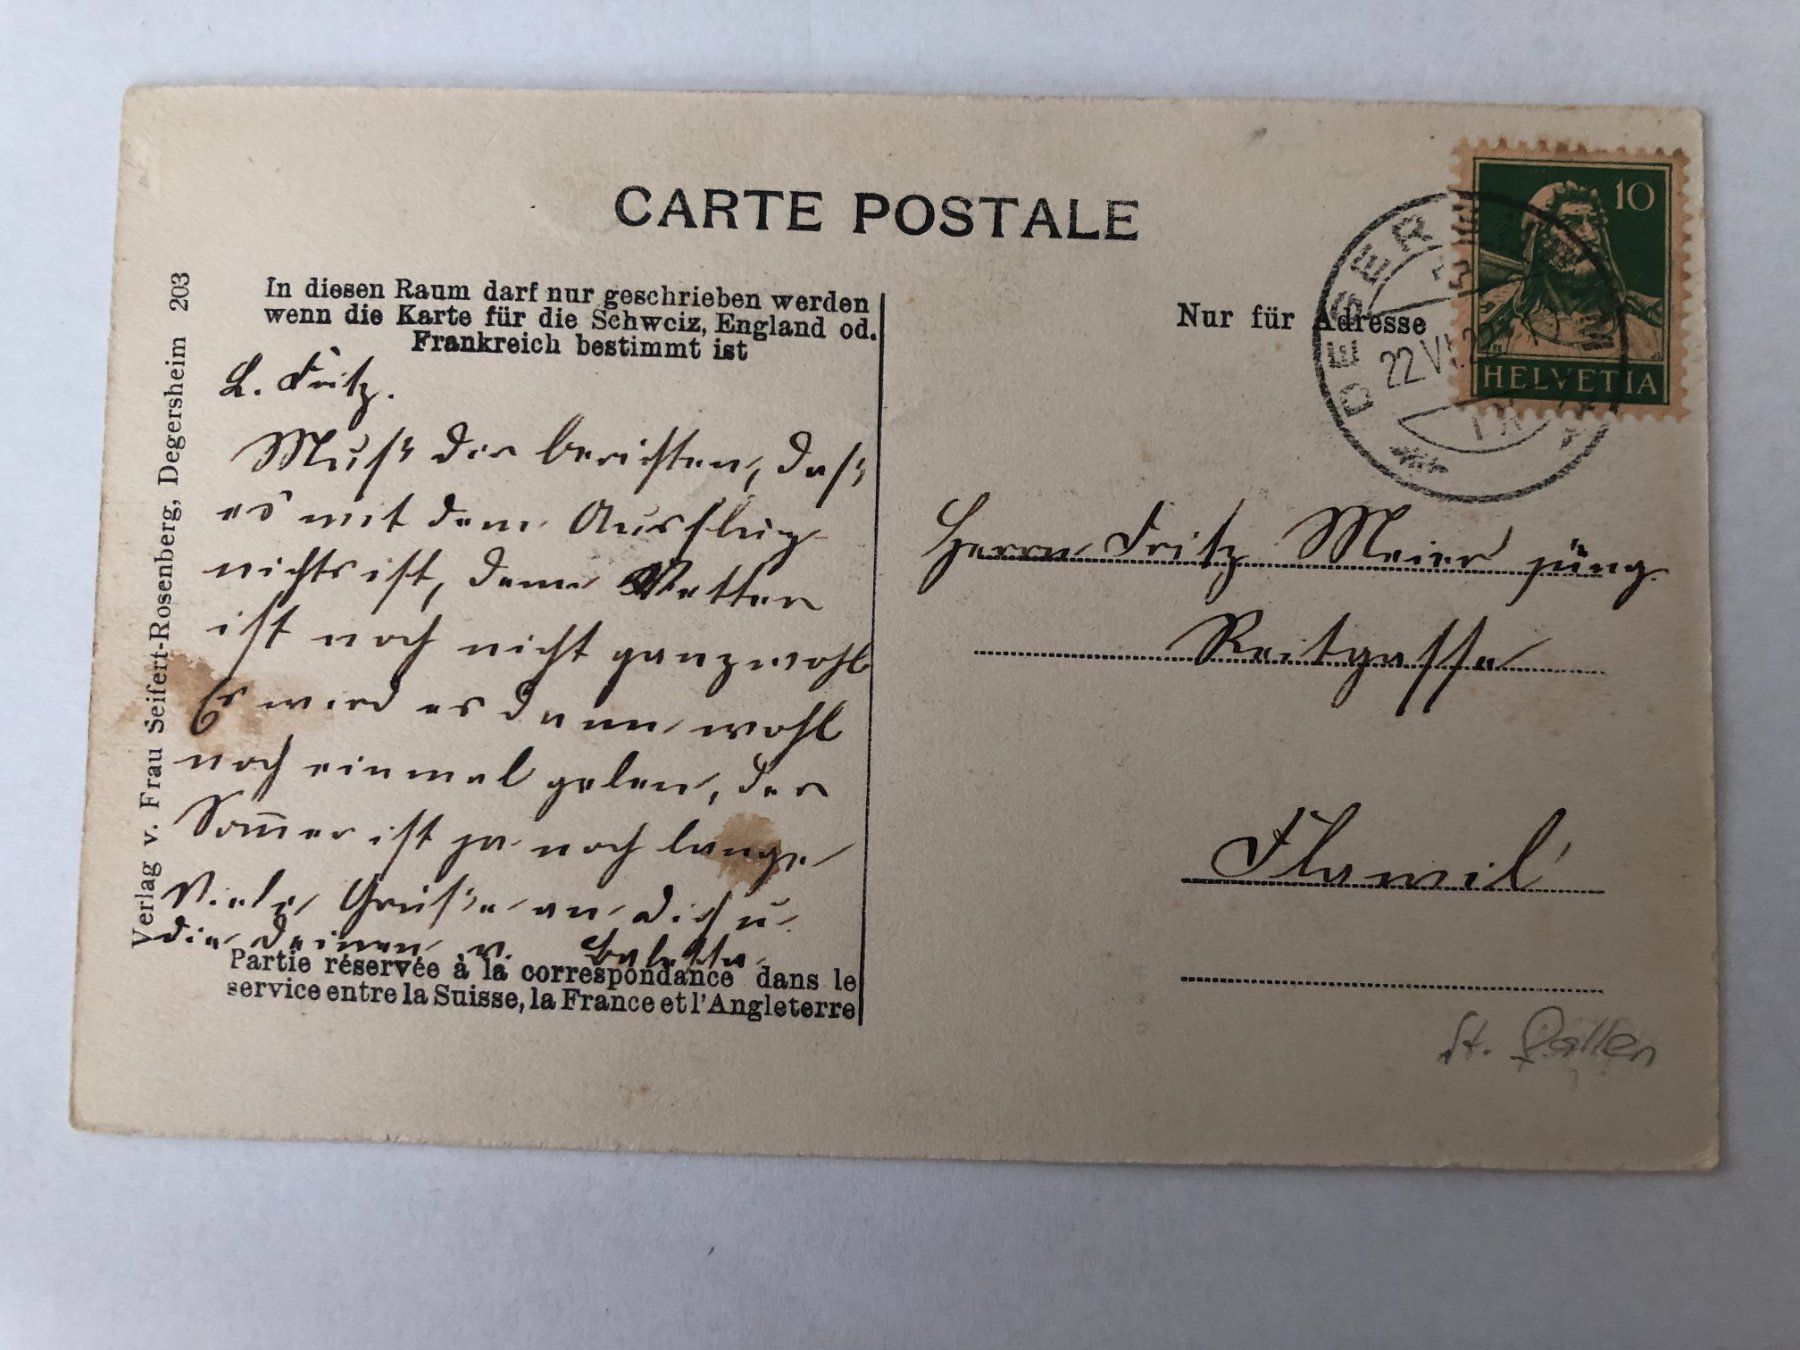 CARTE POSTALE
In diesen Raum darf nur geschrieben werden
wenn die Karte für die Schweiz, England od.
Frankreich bestimmt ist
L. Fritz.
Muß dir berichten, daß
es mit dem Ausflug
nichts ist, denn Vetter
ist noch nicht ganz wohl
Es wird es dann wohl
noch einmal geben, der
Som̅er ist ja noch lange
Viele Grüße an dich u.
die deinen v. Babette
Partie réservée à la correspondance dans le
service entre la Suisse, la France et l'Angleterre
Verlag v. Frau Seifert-Rosenberg, Degersheim 203
Nur für Adresse
10
HELVETIA
DEGER
22 VI
Herrn Fritz Meier jüng.
Reitgasse
Flawil
St. Gallen